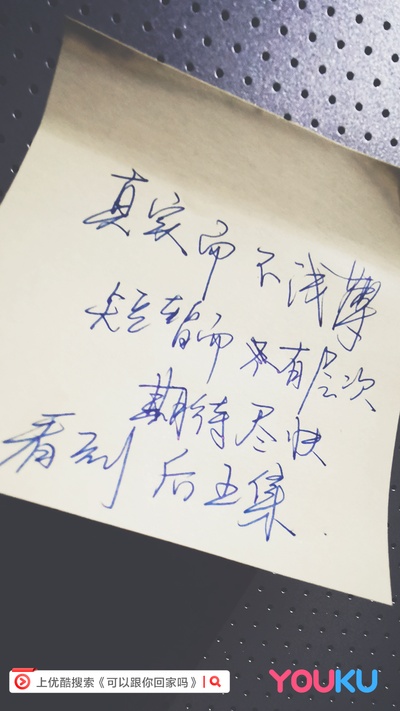 真实而不浅薄
短暂而有层次
期待尽快
看到后五集
上优酷搜索《可以跟你回家吗》
YOUKU